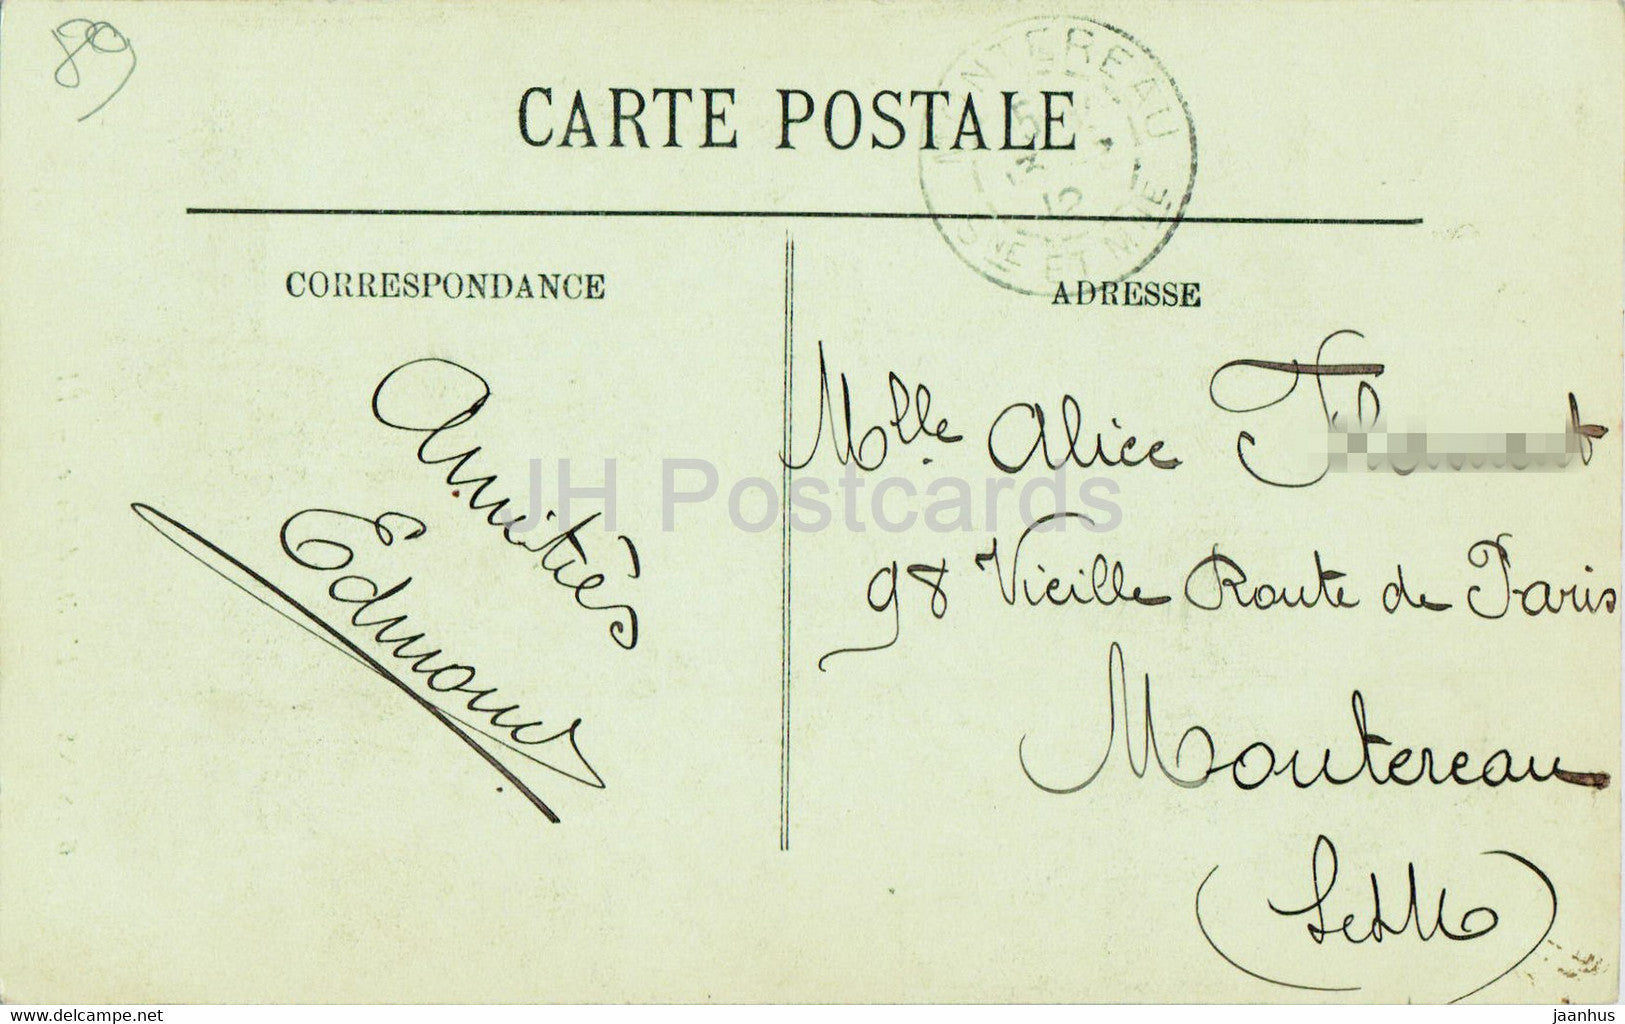 89
CARTE POSTALE
MONTEREAU
5
3
12
SNE ET MNE
CORRESPONDANCE
ADRESSE
Amitiés
Edmond
Mlle. Alice
98 Vieille Route de Paris
Montereau
(S et M)
JH Postcards
www.delcampe.net
jaanhus